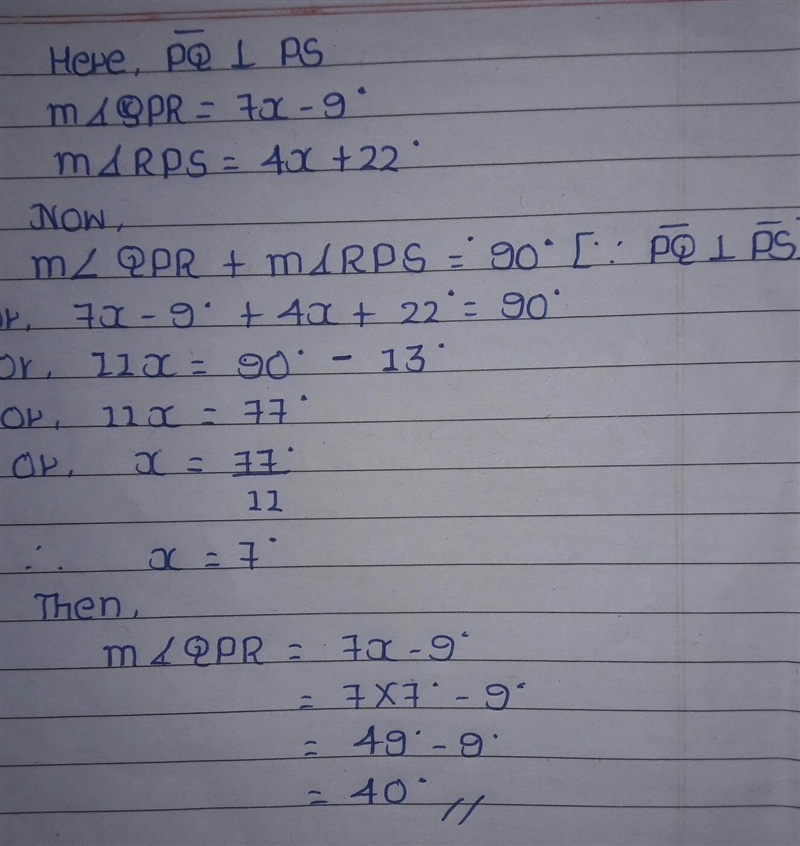 Here, P̅Q̅ ⊥ PS
m∠QPR = 7x - 9°
m∠RPS = 4x + 22°
Now,
m∠ QPR + m∠RPS = 90° [∵ P̅Q̅ ⊥ P̅S̅
or, 7x - 9° + 4x + 22° = 90°
or, 11x = 90° - 13°
or, 11x = 77°
or, x = 77°
11
∴ x = 7°
Then,
m∠QPR = 7x - 9°
= 7×7° - 9°
= 49° - 9°
= 40° //